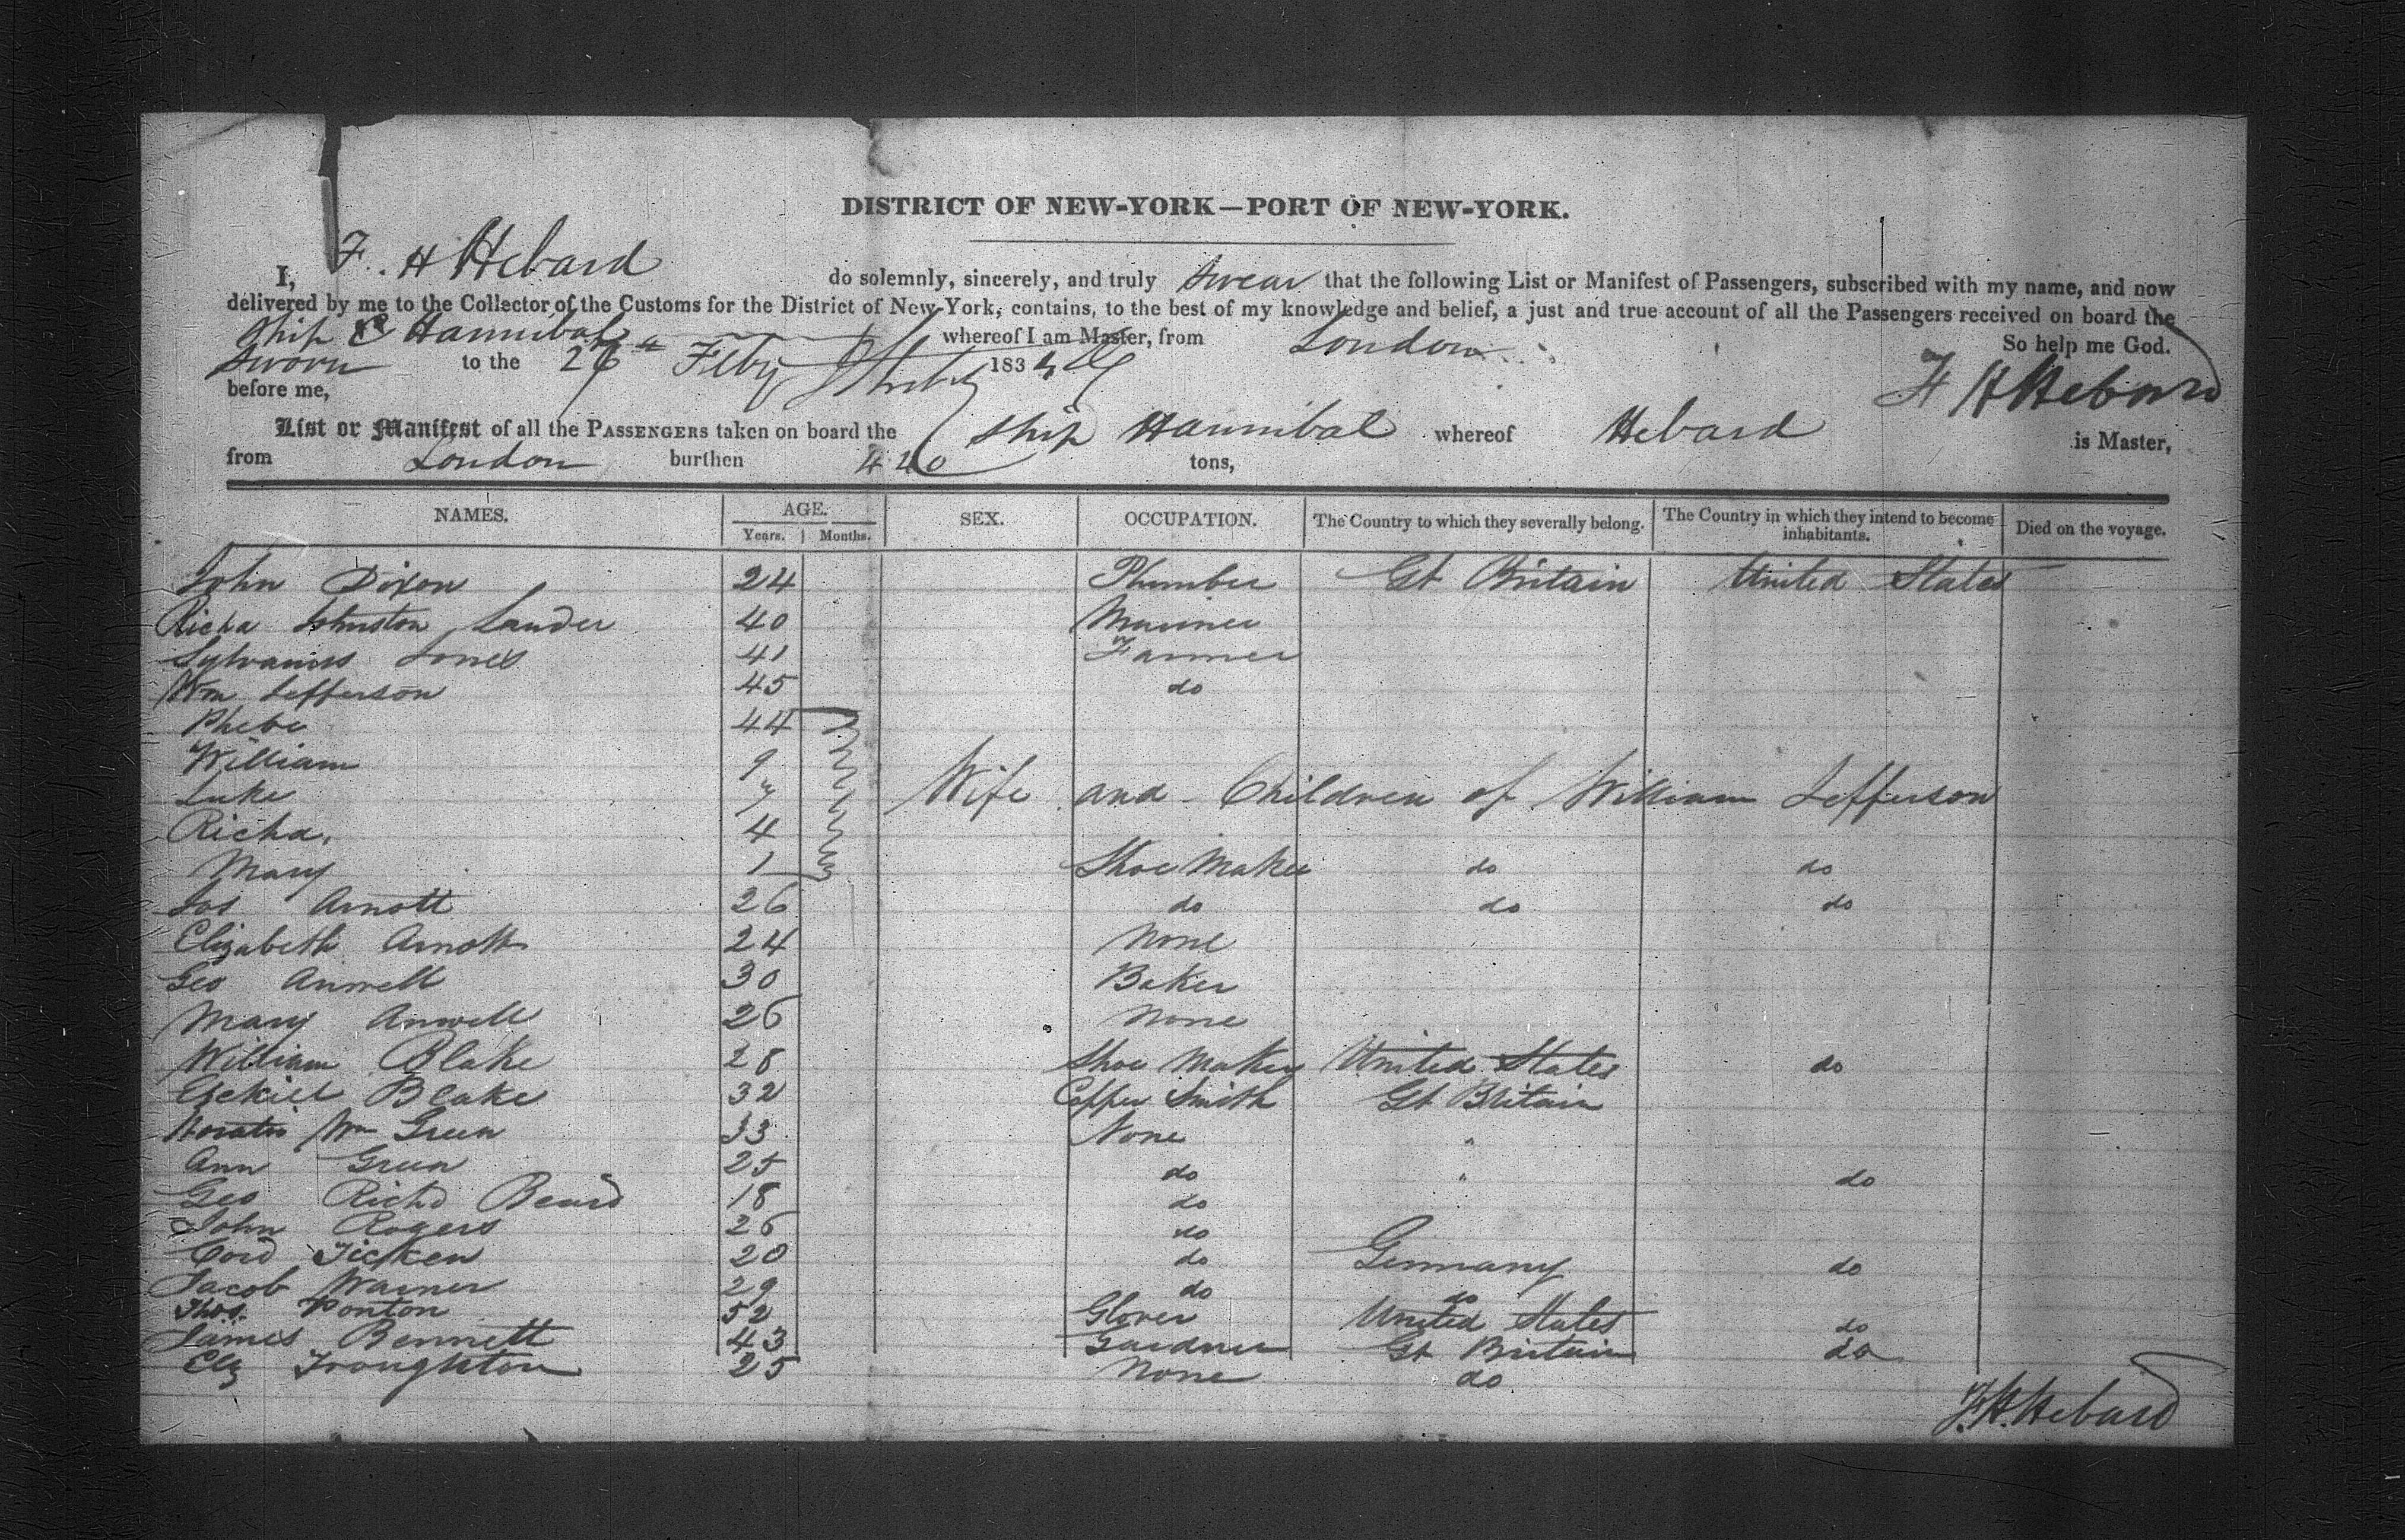 DISTRICT OF NEW-YORK—PORT OF NEW-YORK.
I, F. H Hebard do solemnly, sincerely, and truly swear that the following List or Manifest of Passengers, subscribed with my name, and now
delivered by me to the Collector of the Customs for the District of New-York, contains, to the best of my knowledge and belief, a just and true account of all the Passengers received on board the
Ship Hannibal whereof I am Master, from London
Sworn to the 26 Feby 183 So help me God.
before me, F H Hebard
List or Manifest of all the PASSENGERS taken on board the Ship Hannibal whereof Hebard is Master,
from London burthen 440 tons,
NAMES. AGE. SEX. OCCUPATION. The Country to which they severally belong. The Country in which they intend to become inhabitants. Died on the voyage.
Years. Months.
John Dixon 24 Plumber Gt Britain United States
Richd Johnston Lauder 40 Mariner
Sylvanus Jones 41 Farmer
Wm Jefferson 45 do
Phebe 44
William 9
Luke 7 Wife and Children of William Jefferson
Richd. 4
Mary 1 Shoe Maker do do
Jos Arnott 26 do do do
Elizabeth Arnott 24 None
Geo Anwell 30 Baker
Mary Anwell 26 None
William Blake 28 Shoe Maker United States do
Ezekiel Blake 32 Copper Smith Gt Britain
Horatio Wm Green 33 None "
Ann Green 25 do " do
Geo Richd Beard 18 do
John Rogers 26 do
Cord Ticken 20 do Germany do
Jacob Warner 29 do do
Thos. Ponton 52 Glover United States do
James Bennett 43 Gardner Gt Britain do
Elz Troughton 25 None do
F. H. Hebard